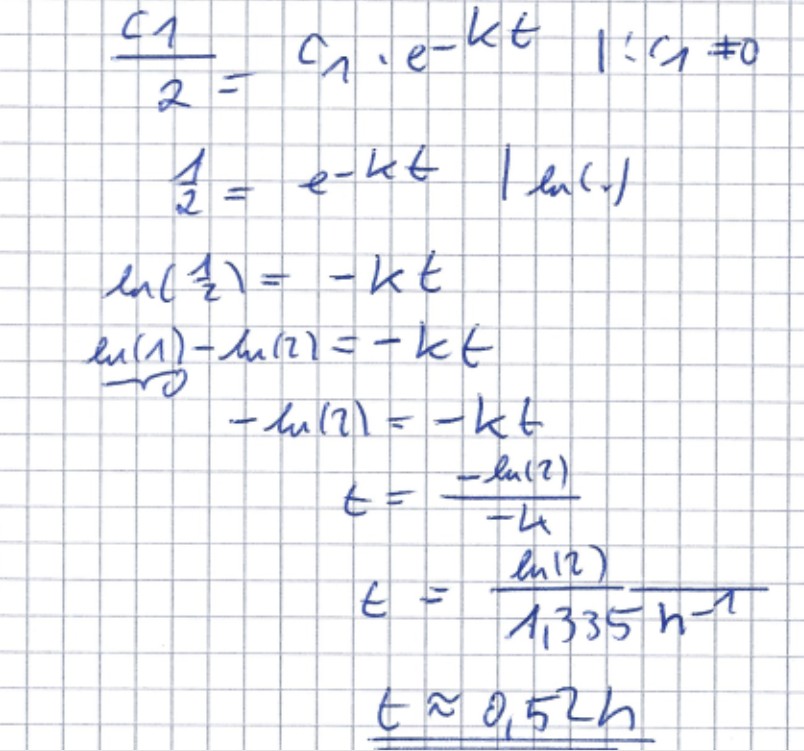 c1/2 = c1 · e^-kt | : c1 ≠ 0
1/2 = e^-kt | ln(.)
ln(1/2) = -kt
ln(1) - ln(2) = -kt
0
-ln(2) = -kt
t = -ln(2)/-k
t = ln(2)/1,335 h^-1
t ≈ 0,52h